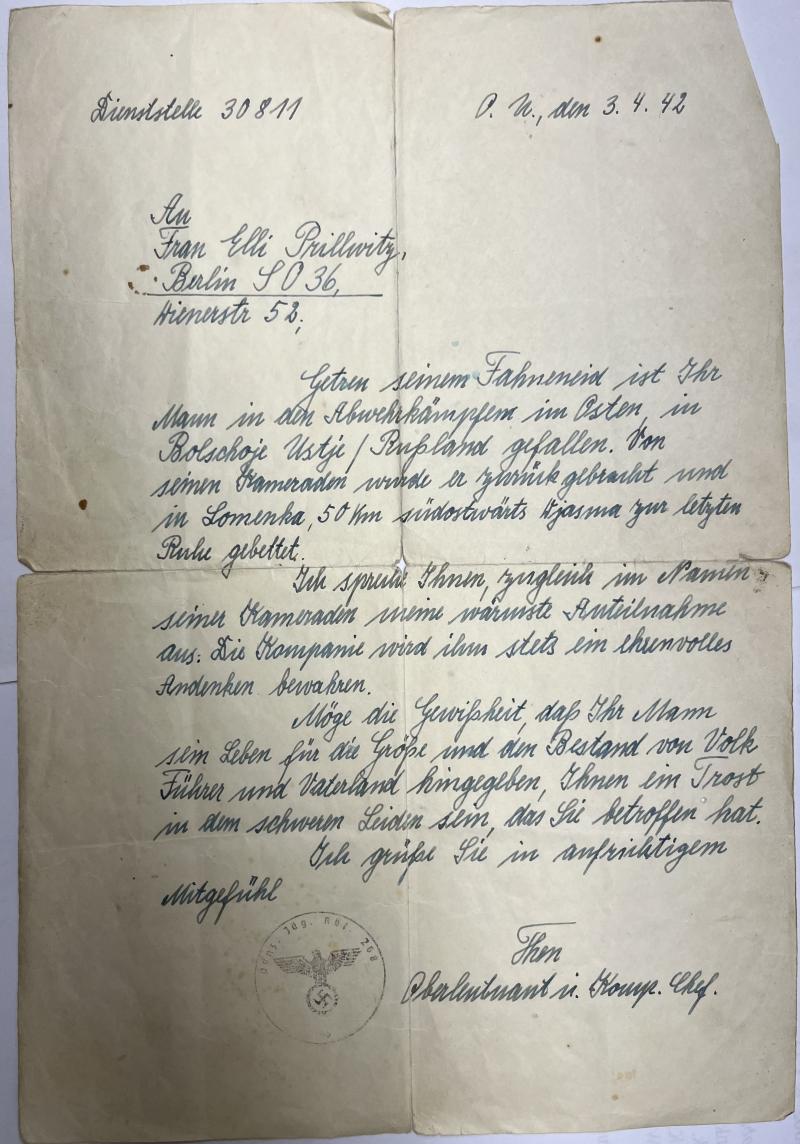 Dienststelle 30811
O. U., den 3. 4. 42
An
Frau Elli Prillwitz,
Berlin S O 36,
Wienerstr 52,
Getreu seinem Fahneneid ist Ihr
Mann in den Abwehrkämpfem im Osten, in
Bolschoje Ustje / Rußland gefallen. Von
seinen Kameraden wurde er zurückgebracht und
in Lomenka, 50 Km südostwärts Wjasma zur letzten
Ruhe gebettet.
Ich spreche Ihnen, zugleich im Namen
seiner Kameraden meine wärmste Anteilnahme
aus. Die Kompanie wird ihm stets ein ehrenvolles
Andenken bewahren.
Möge die Gewißheit, daß Ihr Mann
sein Leben für die Größe und den Bestand von Volk
Führer und Vaterland hingegeben, Ihnen ein Trost
in dem schweren Leiden sein, das Sie betroffen hat.
Ich grüße Sie in aufrichtigem
Mitgefühl
Then
Oberleutnant u. Komp. Chef.
Jäg. 268